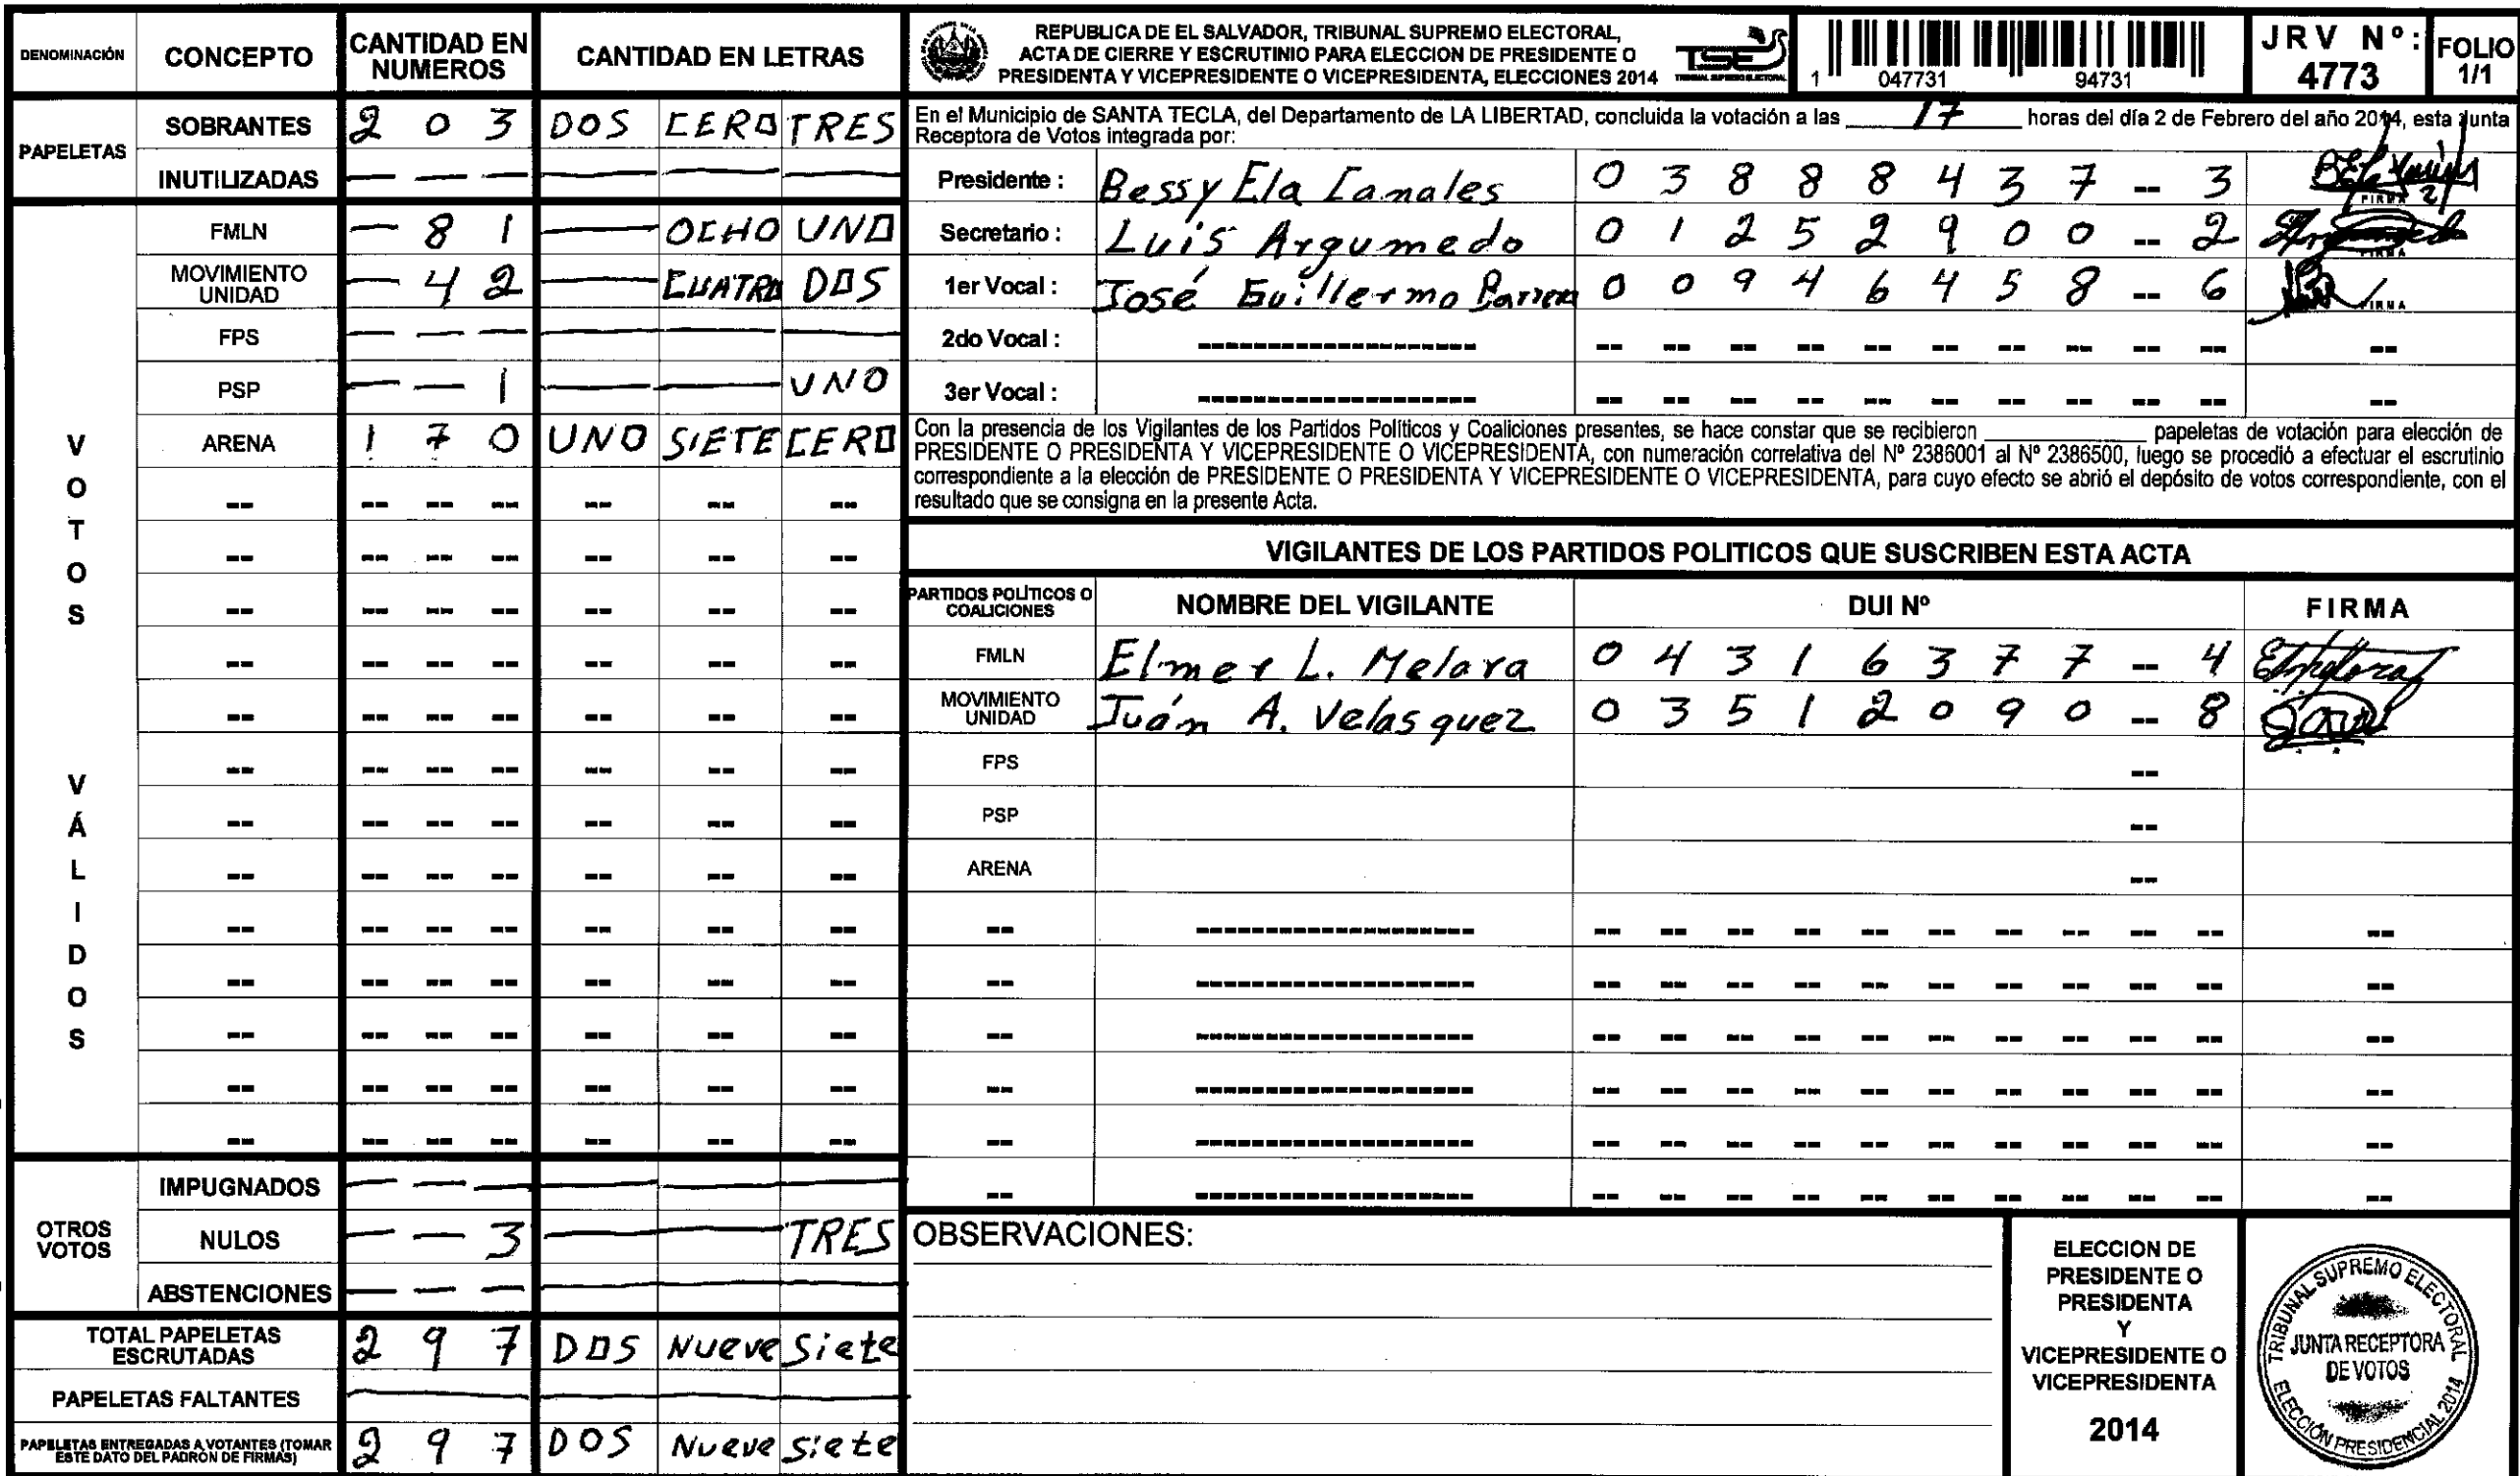 DENOMINACIÓN CONCEPTO CANTIDAD EN NUMEROS CANTIDAD EN LETRAS
PAPELETAS
SOBRANTES 2 0 3 DOS CERO TRES
INUTILIZADAS — — — — — —
VOTOS VÁLIDOS
FMLN — 8 1 — OCHO UNO
MOVIMIENTO UNIDAD — 4 2 — CUATRO DOS
FPS — — — — — —
PSP — — 1 — — UNO
ARENA 1 7 0 UNO SIETE CERO
-- -- -- -- -- -- --
-- -- -- -- -- -- --
-- -- -- -- -- -- --
-- -- -- -- -- -- --
-- -- -- -- -- -- --
-- -- -- -- -- -- --
-- -- -- -- -- -- --
-- -- -- -- -- -- --
-- -- -- -- -- -- --
-- -- -- -- -- -- --
-- -- -- -- -- -- --
-- -- -- -- -- -- --
-- -- -- -- -- -- --
OTROS VOTOS
IMPUGNADOS — — — — — —
NULOS — — 3 — — TRES
ABSTENCIONES — — — — — —
TOTAL PAPELETAS ESCRUTADAS 2 9 7 DOS Nueve Siete
PAPELETAS FALTANTES — — — — — —
PAPELETAS ENTREGADAS A VOTANTES (TOMAR ESTE DATO DEL PADRÓN DE FIRMAS) 2 9 7 DOS Nueve siete
REPUBLICA DE EL SALVADOR, TRIBUNAL SUPREMO ELECTORAL,
ACTA DE CIERRE Y ESCRUTINIO PARA ELECCION DE PRESIDENTE O
PRESIDENTA Y VICEPRESIDENTE O VICEPRESIDENTA, ELECCIONES 2014
TSE
TRIBUNAL SUPREMO ELECTORAL
1 047731 94731
JRV Nº: 4773
FOLIO 1/1
En el Municipio de SANTA TECLA, del Departamento de LA LIBERTAD, concluida la votación a las 17 horas del día 2 de Febrero del año 2014, esta Junta
Receptora de Votos integrada por:
Presidente : Bessy Ela Canales 0 3 8 8 8 4 3 7 -- 3 FIRMA
Secretario : Luis Argumedo 0 1 2 5 2 9 0 0 -- 2 FIRMA
1er Vocal : José Guillermo 0 0 9 4 6 4 5 8 -- 6 FIRMA
2do Vocal : ------------------ -- -- -- -- -- -- -- -- -- -- --
3er Vocal : ------------------ -- -- -- -- -- -- -- -- -- -- --
Con la presencia de los Vigilantes de los Partidos Políticos y Coaliciones presentes, se hace constar que se recibieron ____________ papeletas de votación para elección de
PRESIDENTE O PRESIDENTA Y VICEPRESIDENTE O VICEPRESIDENTA, con numeración correlativa del Nº 2386001 al Nº 2386500, luego se procedió a efectuar el escrutinio
correspondiente a la elección de PRESIDENTE O PRESIDENTA Y VICEPRESIDENTE O VICEPRESIDENTA, para cuyo efecto se abrió el depósito de votos correspondiente, con el
resultado que se consigna en la presente Acta.
VIGILANTES DE LOS PARTIDOS POLITICOS QUE SUSCRIBEN ESTA ACTA
PARTIDOS POLÍTICOS O COALICIONES NOMBRE DEL VIGILANTE DUI Nº FIRMA
FMLN Elmer L. Melara 0 4 3 1 6 3 7 7 -- 4
MOVIMIENTO UNIDAD Juán A. Velasquez 0 3 5 1 2 0 9 0 -- 8
FPS --
PSP --
ARENA --
-- ------------------ -- -- -- -- -- -- -- -- -- -- --
-- ------------------ -- -- -- -- -- -- -- -- -- -- --
-- ------------------ -- -- -- -- -- -- -- -- -- -- --
-- ------------------ -- -- -- -- -- -- -- -- -- -- --
-- ------------------ -- -- -- -- -- -- -- -- -- -- --
-- ------------------ -- -- -- -- -- -- -- -- -- -- --
OBSERVACIONES:
ELECCION DE
PRESIDENTE O
PRESIDENTA
Y
VICEPRESIDENTE O
VICEPRESIDENTA
2014
TRIBUNAL SUPREMO ELECTORAL
JUNTA RECEPTORA
DE VOTOS
ELECCIÓN PRESIDENCIAL 2014